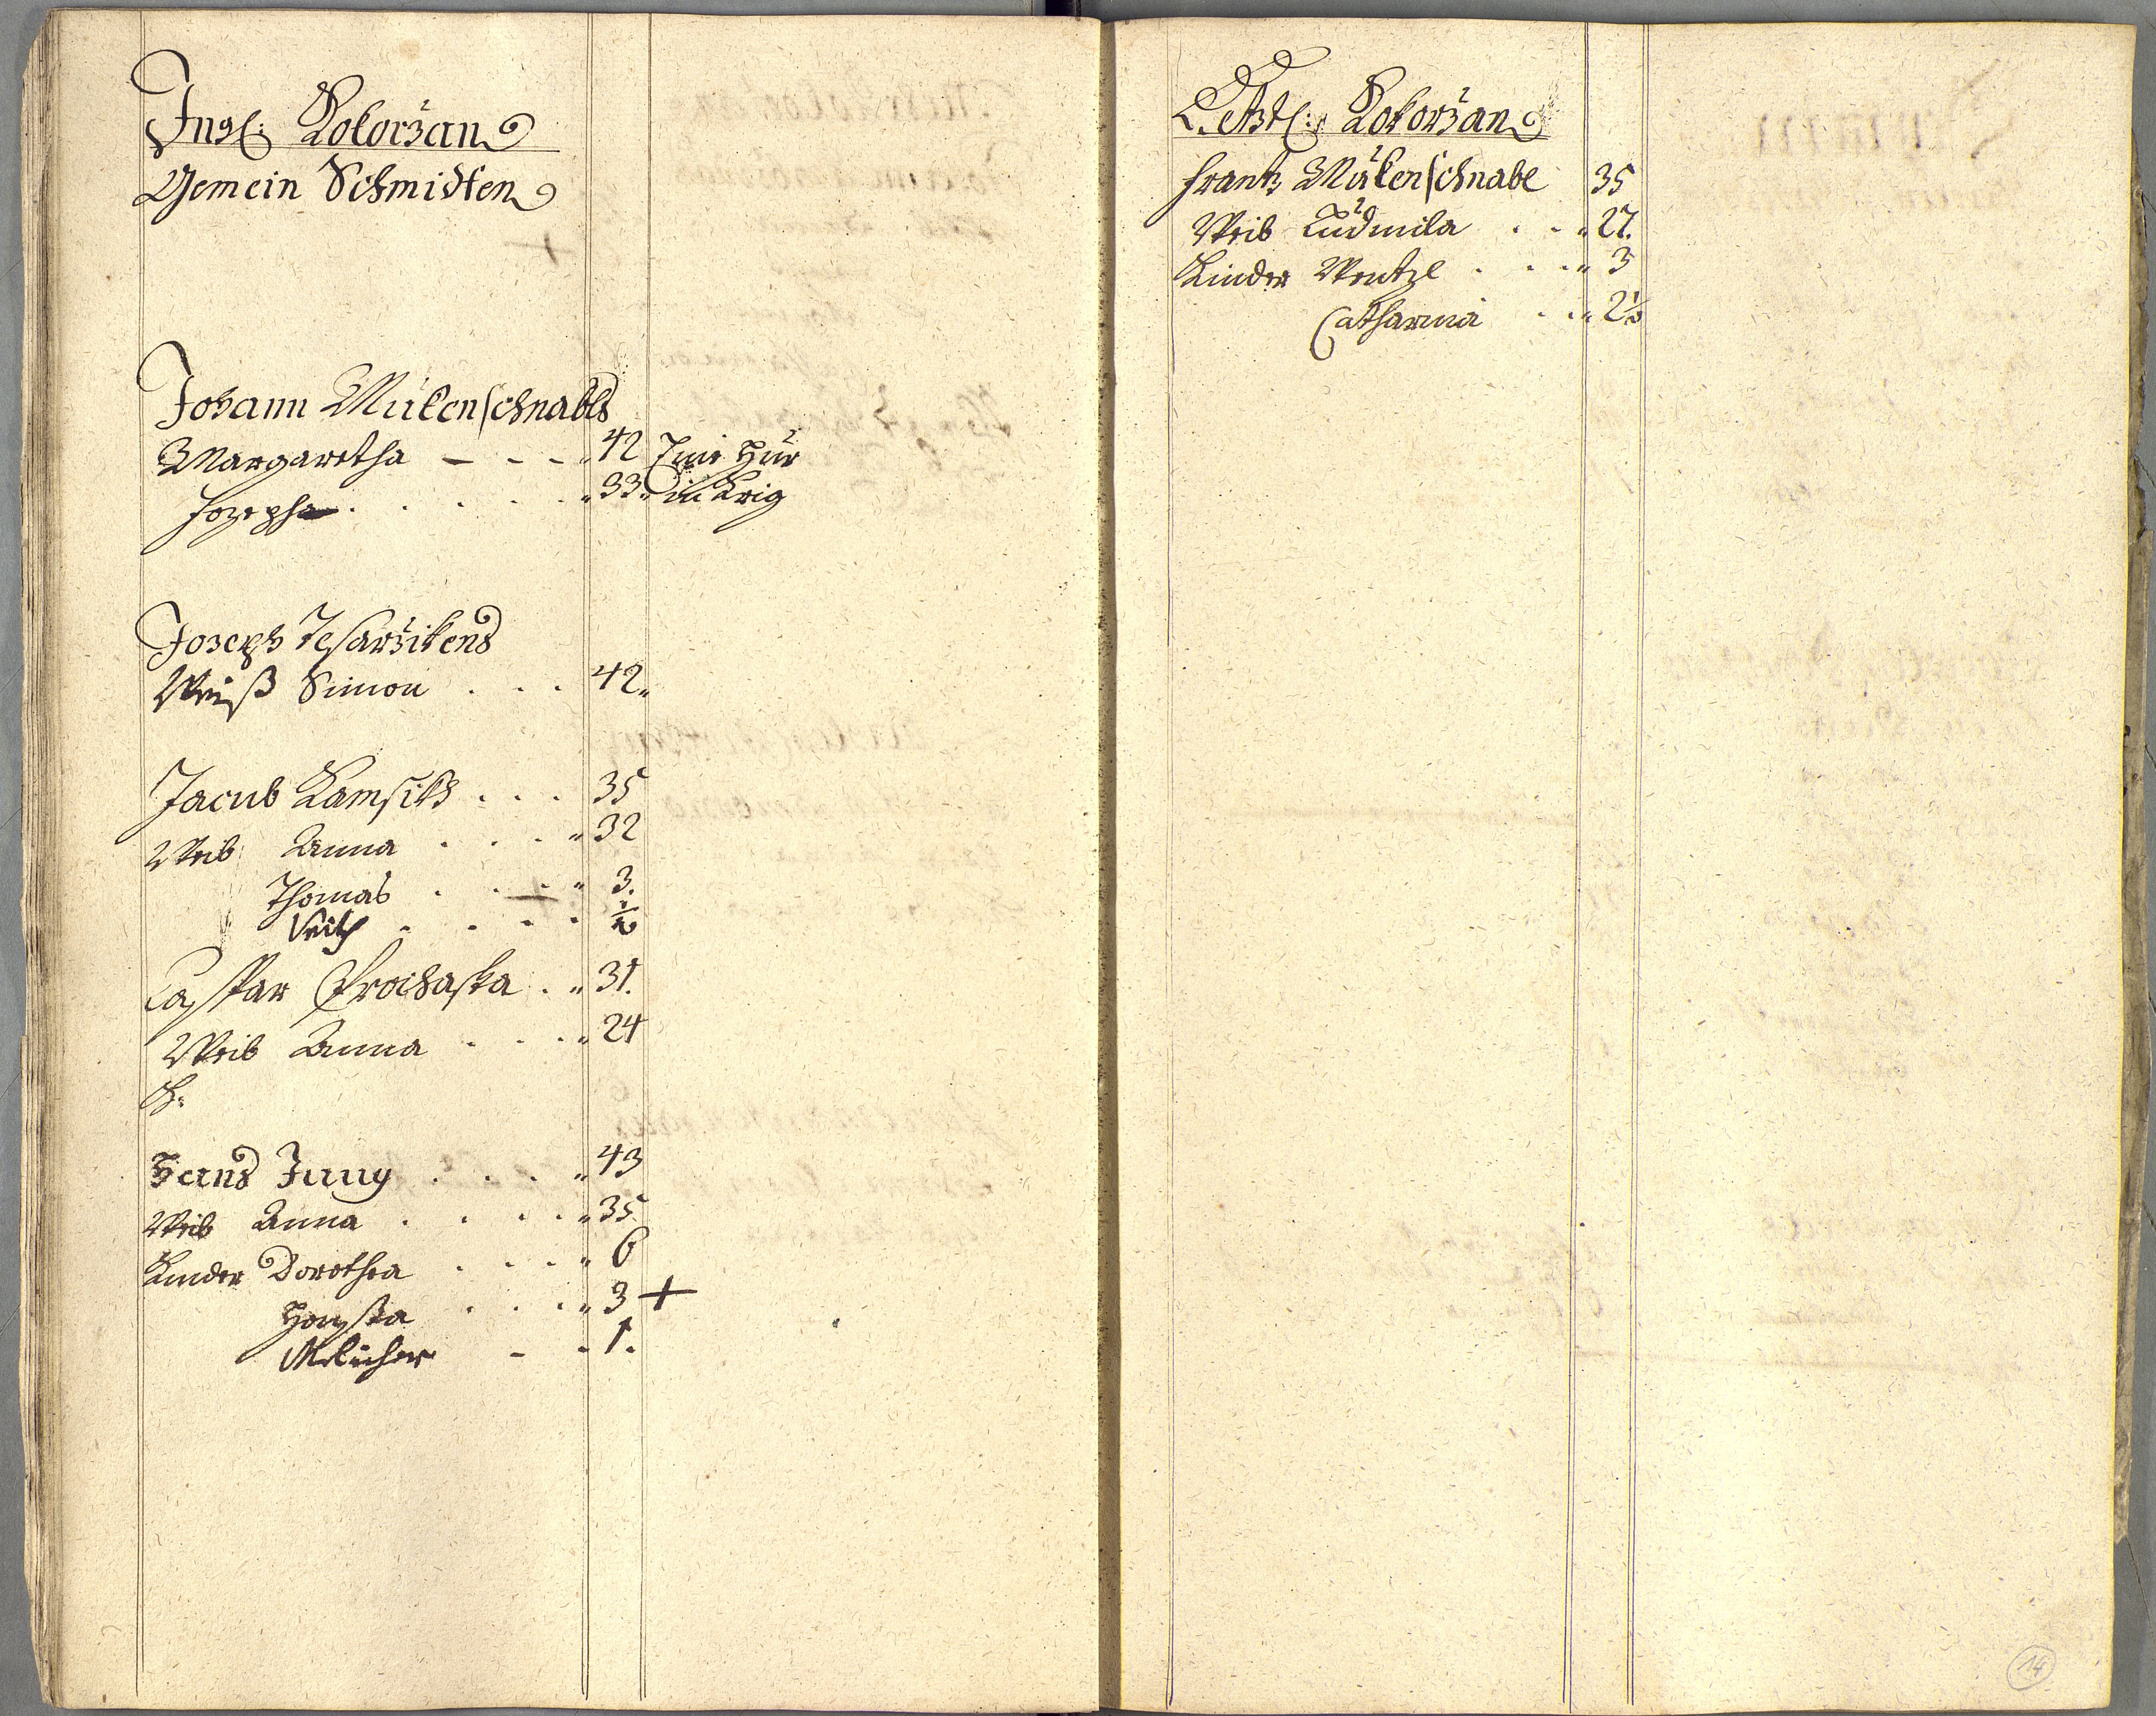 Insl: Rokoržan
Gemein Schmidten
Johann Mülenschnabls
Margaretha - - - 42
Jozepha . . . . 33
in Krig
Jozeph Tesaržikens
Weiß Simon . . . 42
Jacub Kamsiks . . . 35
Weib Anna . . . 32
Thomas . . . 3.
Veith . . . . ½
Caspar Prochaska . . 31.
Weib Anna . . . 24
K:
Hans Jung . . . 43
Weib Anna . . . . 35.
Kinder Dorothea . . . 6
. . . 3 +
Melicher - - 1.
Rokoržan
Frantz Mülenschnabl 35
Weib Ludmila . . 27.
Kinder Wentzl . . . 3
Catharina . . 2½
14